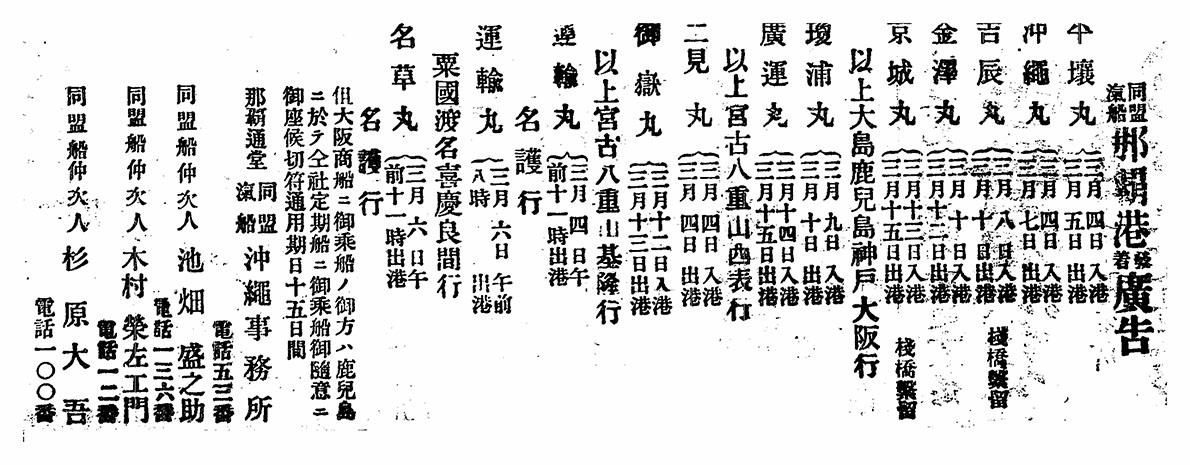 同盟汽船 那覇港發着廣告
平壤丸 三月四日入港
三月五日出港
沖繩丸 三月四日入港
三月七日出港
吉辰丸 三月八日入港
三月十日出港 棧橋繫留
金澤丸 三月十日入港
三月十二日出港
京城丸 三月十三日入港
三月十五日出港 棧橋繫留
以上大島鹿兒島神戸大阪行
瓊浦丸 三月九日入港
三月十日出港
廣運丸 三月十四日入港
三月十五日出港
以上宮古八重山西表行
二見丸 三月四日入港
三月四日出港
御嶽丸 三月十二日入港
三月十三日出港
以上宮古八重山基隆行
運輸丸 三月四日午
前十一時出港
名護行
運輸丸 三月六日午前
八時出港
粟國渡名喜慶良間行
名草丸 三月六日午
前十一時出港
名護行
但大阪商船ニ御乘船ノ御方ハ鹿兒島
ニ於テ仝社定期船ニ御乘船御隨意ニ
御座候切符通用期日十五日間
那覇通堂 同盟汽船 沖繩事務所
電話五三番
同盟船仲次人 池畑盛之助
電話一三六番
同盟船仲次人 木村榮左工門
電話一二番
同盟船仲次人 杉原大吾
電話一〇〇番